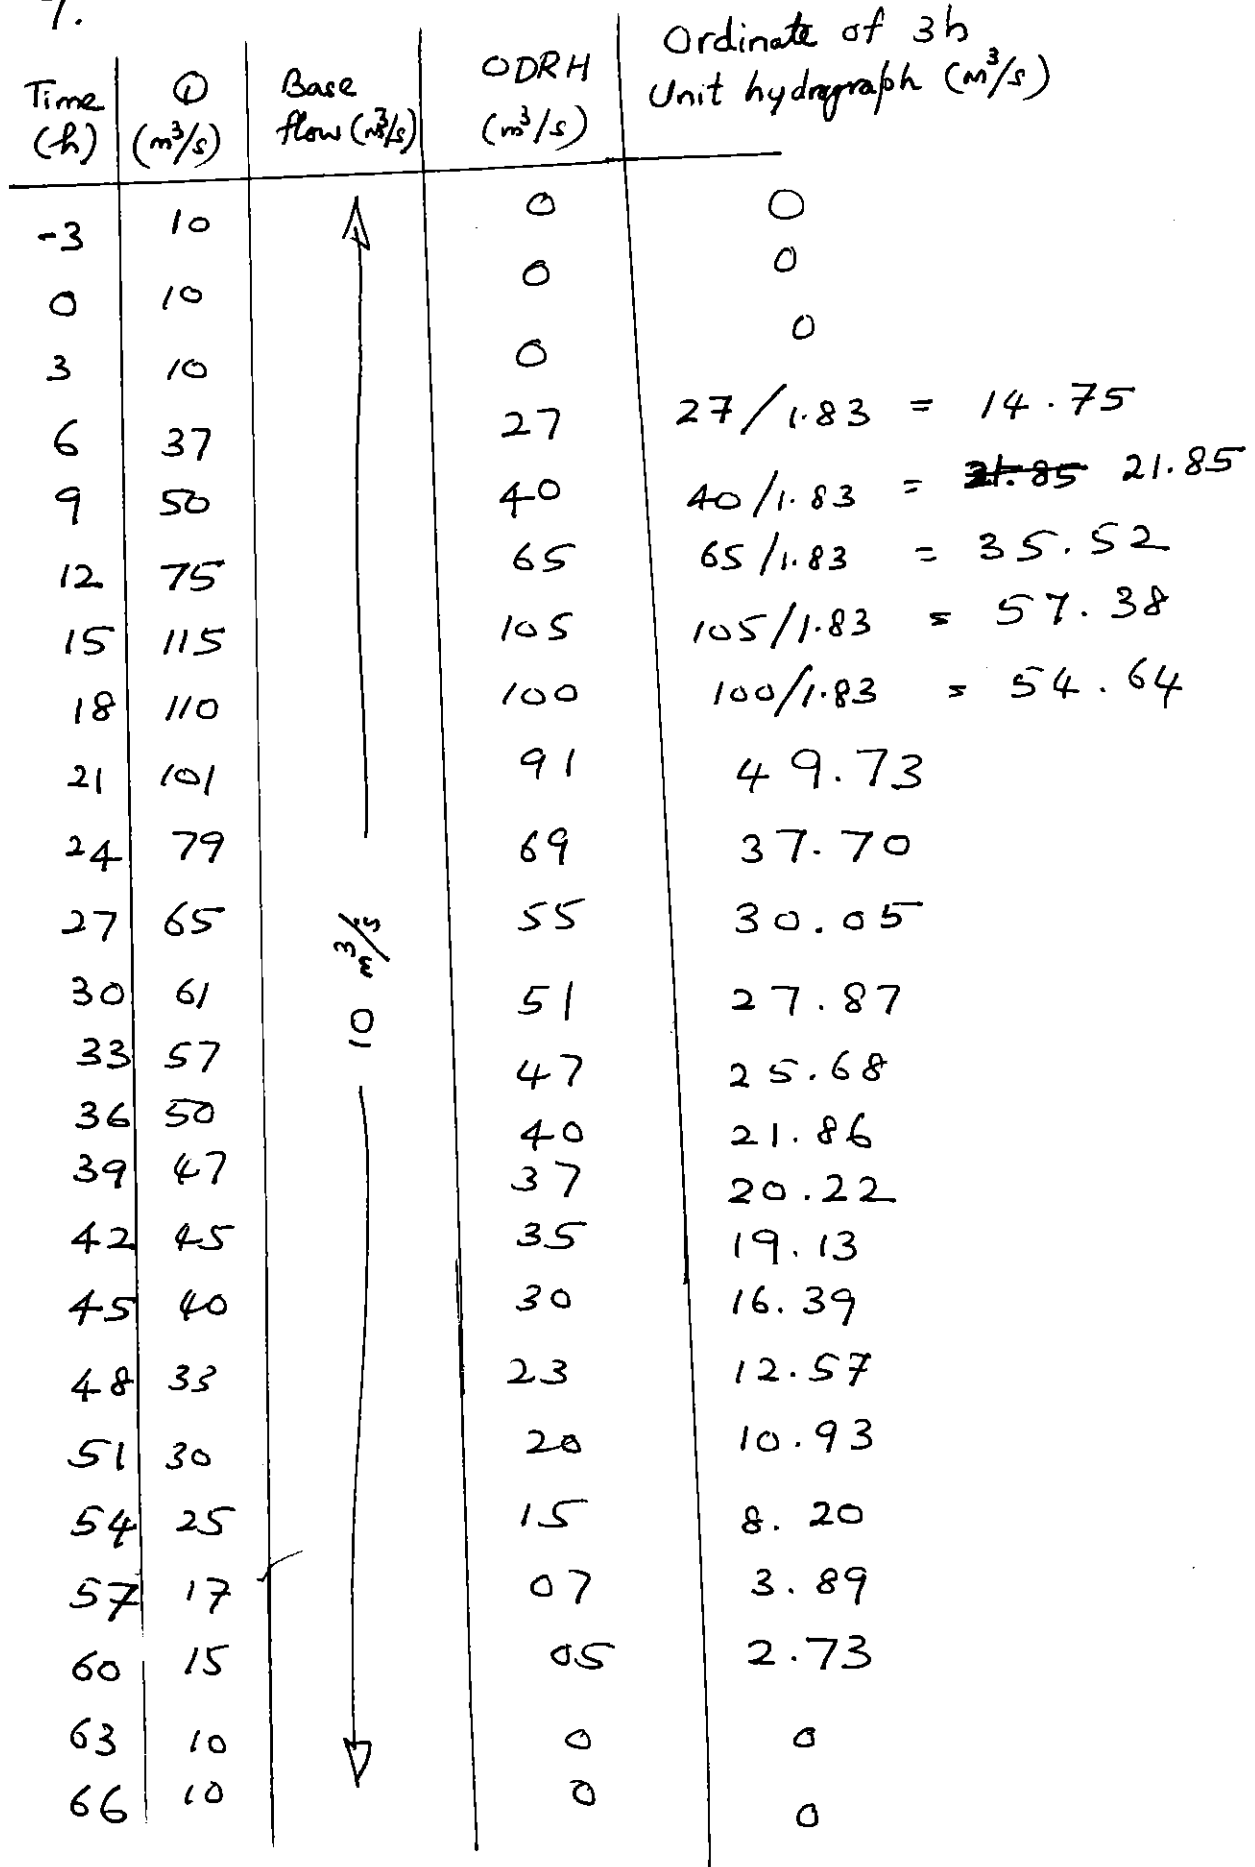 7.
Time (h) | Q (m³/s) | Base flow (m³/s) | ODRH (m³/s) | Ordinate of 3h Unit hydrograph (m³/s)
-3 | 10 | | 0 | 0
0 | 10 | | 0 | 0
3 | 10 | | 0 | 0
6 | 37 | | 27 | 27/1.83 = 14.75
9 | 50 | | 40 | 40/1.83 = 21.85 21.85
12 | 75 | | 65 | 65/1.83 = 35.52
15 | 115 | | 105 | 105/1.83 = 57.38
18 | 110 | | 100 | 100/1.83 = 54.64
21 | 101 | | 91 | 49.73
24 | 79 | | 69 | 37.70
27 | 65 | 10 m³/s | 55 | 30.05
30 | 61 | | 51 | 27.87
33 | 57 | | 47 | 25.68
36 | 50 | | 40 | 21.86
39 | 47 | | 37 | 20.22
42 | 45 | | 35 | 19.13
45 | 40 | | 30 | 16.39
48 | 33 | | 23 | 12.57
51 | 30 | | 20 | 10.93
54 | 25 | | 15 | 8.20
57 | 17 | | 07 | 3.89
60 | 15 | | 05 | 2.73
63 | 10 | | 0 | 0
66 | 10 | | 0 | 0